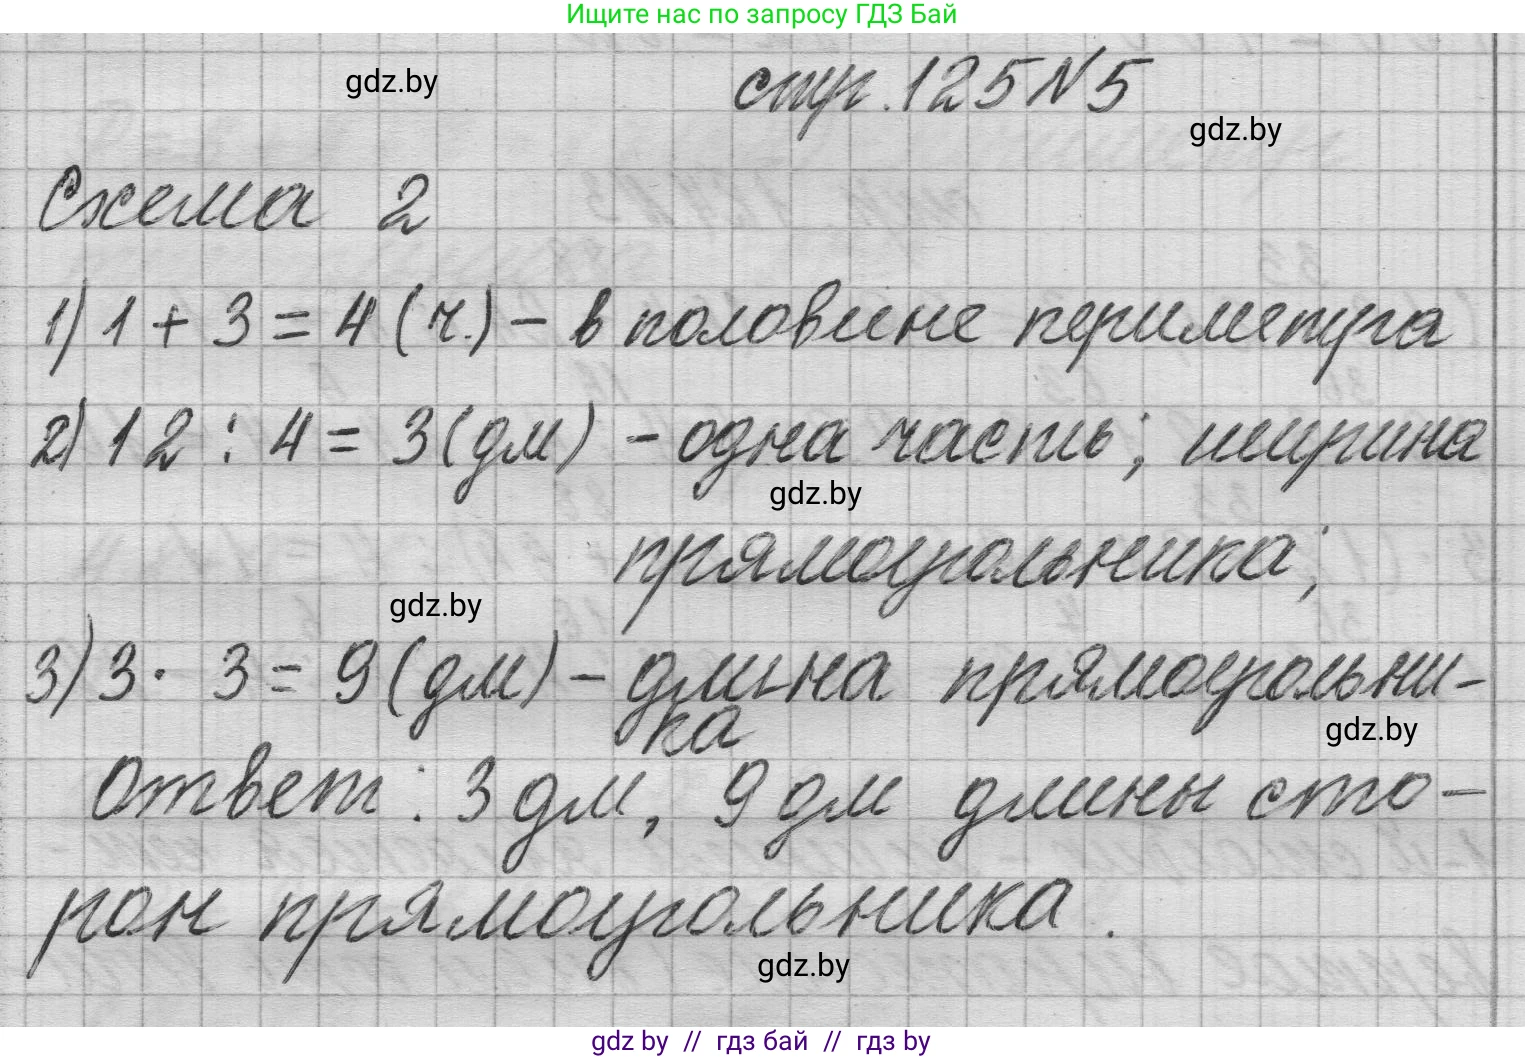 Ищите нас по запросу ГДЗ Бай
gdz.by
стр. 125 N 5
gdz.by
Схема 2
1) 1 + 3 = 4 (ч.) - в половине периметра
2) 12 : 4 = 3 (дм) - одна часть; ширина
gdz.by
прямоугольника;
gdz.by
3) 3 · 3 = 9 (дм) - длина прямоугольни-
ка
gdz.by
Ответ: 3 дм, 9 дм длины сто-
рон прямоугольника.
gdz.by
gdz by // гдз бай // гдз by